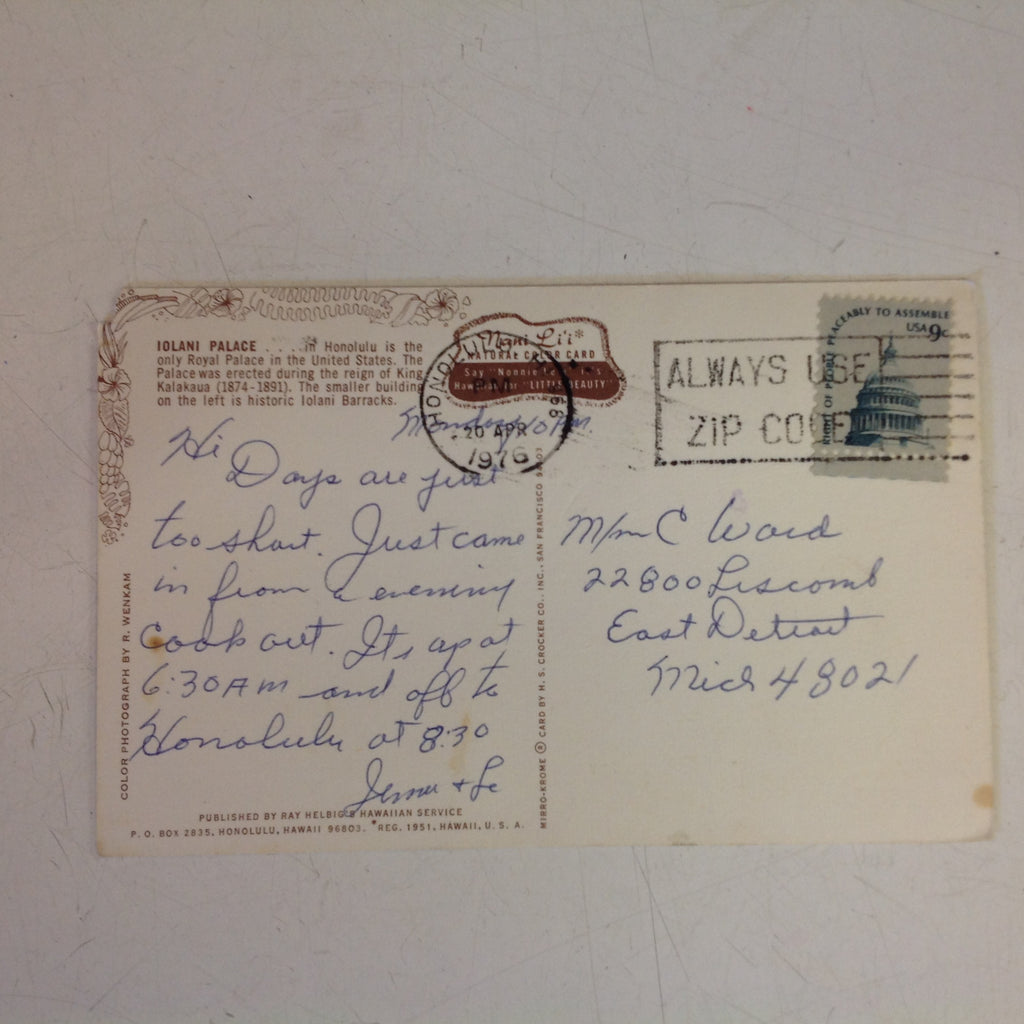 IOLANI PALACE . . . in Honolulu is the
only Royal Palace in the United States. The
Palace was erected during the reign of King
Kalakaua (1874-1891). The smaller building
on the left is historic Iolani Barracks.
Nani Li'i*
NATURAL COLOR CARD
Say "Nonnie
Hawaiian for "LITTLE BEAUTY"
HONOLULU
PM
20 APR
1976
968
ALWAYS USE
ZIP CODE
PEACEABLY TO ASSEMBLE
USA 9c
OF PEOPLE
Monday 10 PM.
Hi
Days are just
too short. Just came
in from a evening
Cook out. Its up at
6:30 AM and off to
Honolulu at 8:30
M/m C Ward
22800 Liscomb
East Detroit
Mich 48021
COLOR PHOTOGRAPH BY R. WENKAM
MIRRO-KROME ® CARD BY H. S. CROCKER CO., INC., SAN FRANCISCO
PUBLISHED BY RAY HELBIG'S HAWAIIAN SERVICE
P. O. BOX 2835, HONOLULU, HAWAII 96803. *REG. 1951, HAWAII, U. S. A.